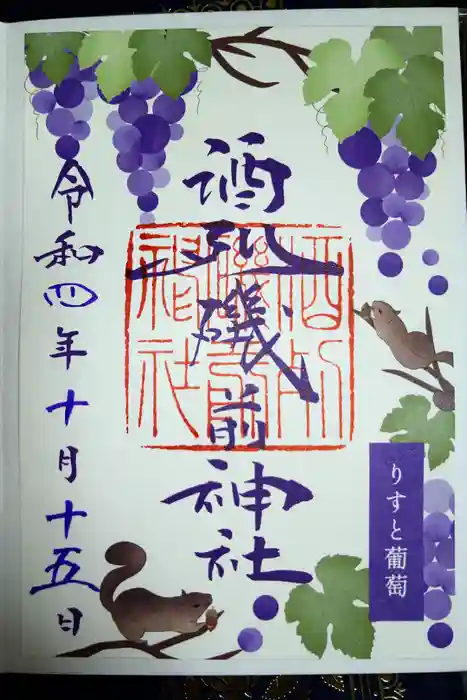 酒列磯前神社
令和四年十月十五日
りすと葡萄
酒列
磯前
神社